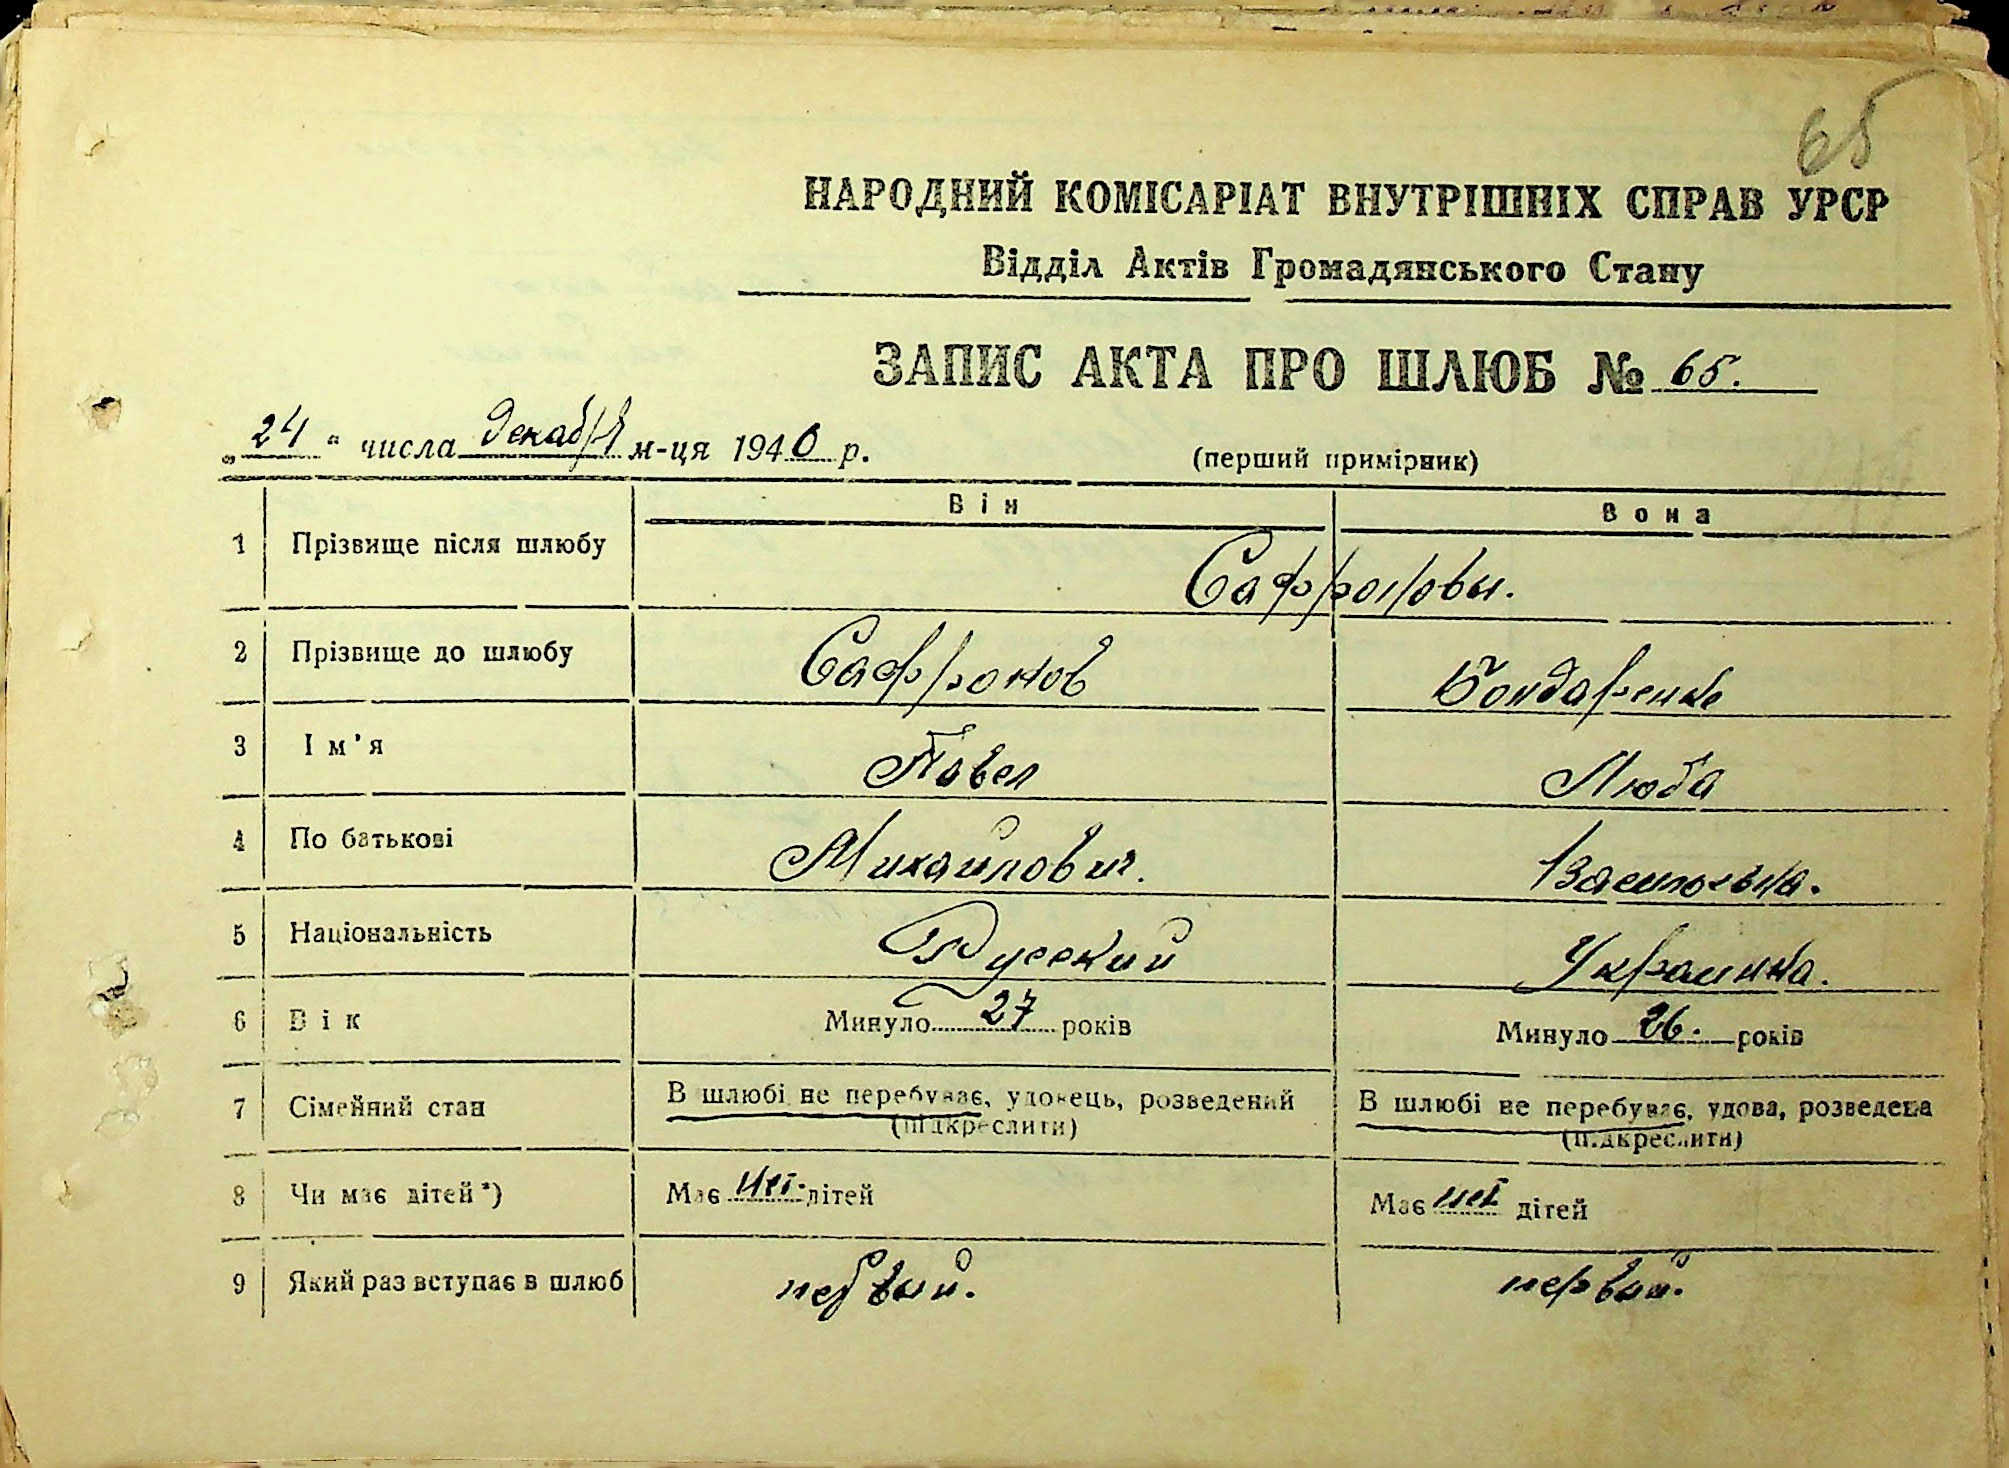 65
НАРОДНИЙ КОМІСАРІАТ ВНУТРІШНІХ СПРАВ УРСР
Відділ Актів Громадянського Стану
ЗАПИС АКТА ПРО ШЛЮБ № 65.
„24“ числа декабря м-ця 1940 р.
(перший примірник)
Він Вона
1 Прізвище після шлюбу Сафроновы.
2 Прізвище до шлюбу Сафронов Бондаренко
3 Ім'я Павел Люба
4 По батькові Михайлович. Васильевна.
5 Національність Русский Украинка.
6 Вік Минуло 27 років Минуло 26. років
7 Сімейний стан В шлюбі не перебуває, удовець, розведений В шлюбі не перебуває, удова, розведена
(підкреслити) (підкреслити)
8 Чи має дітей*) Має нет. дітей Має нет дітей
9 Який раз вступає в шлюб первый. первый.